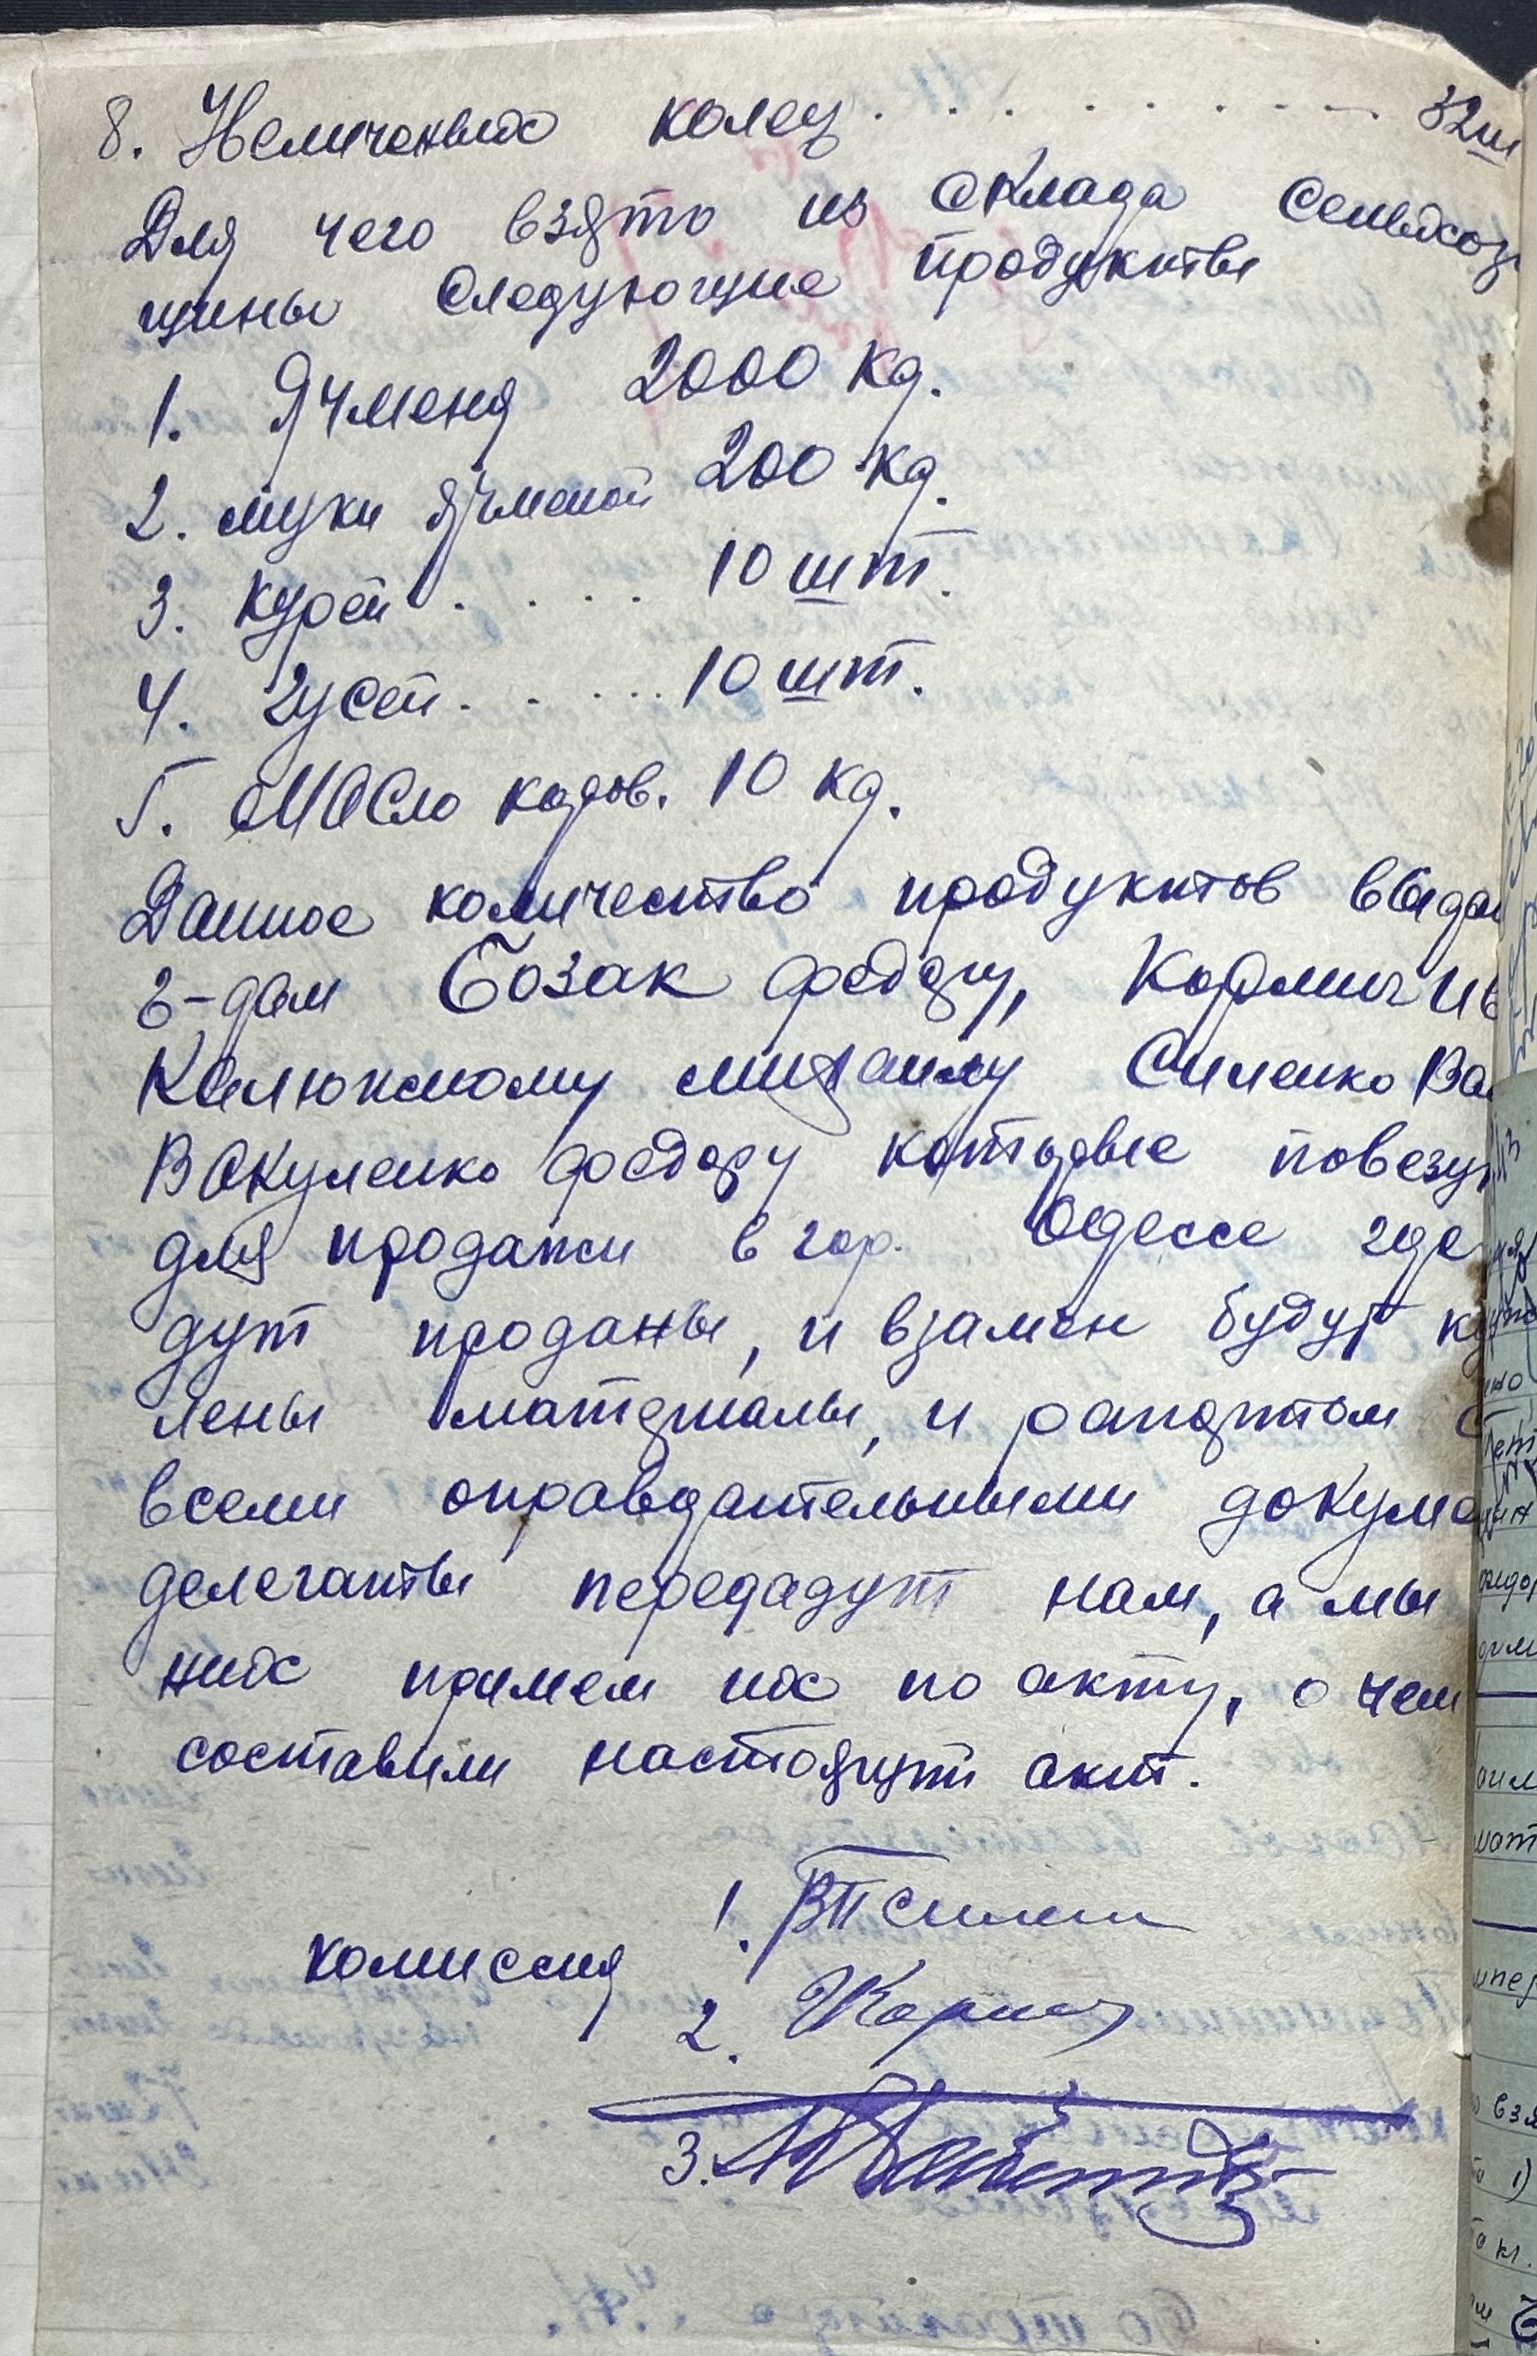 8. колец . . . . . . . . 32 ш
Для чего взято из склада Сельхоз
щины следующие продукты
1. Ячменя 2000 кг.
2. муки ячменой 200 кг.
3. курей . . . . 10 шт.
4. гусей . . . . 10 шт.
5. Масло коров. 10 кг.
Данное количество продуктов выдан
г-дам Бозак Федору,
Калюжному Михаилу Силенко Ва
Вакуленко Федору которые повезут
для продажи в гор. Одессе где
дут проданы, и взамен будут куп
лены материалы, и рапортом с
всеми оправдательными докуме
делеганты передадут нам, а мы
них примем их по акту, о чем
составили настоящий акт.
1. ВП Силен
комиссия
2.
3.